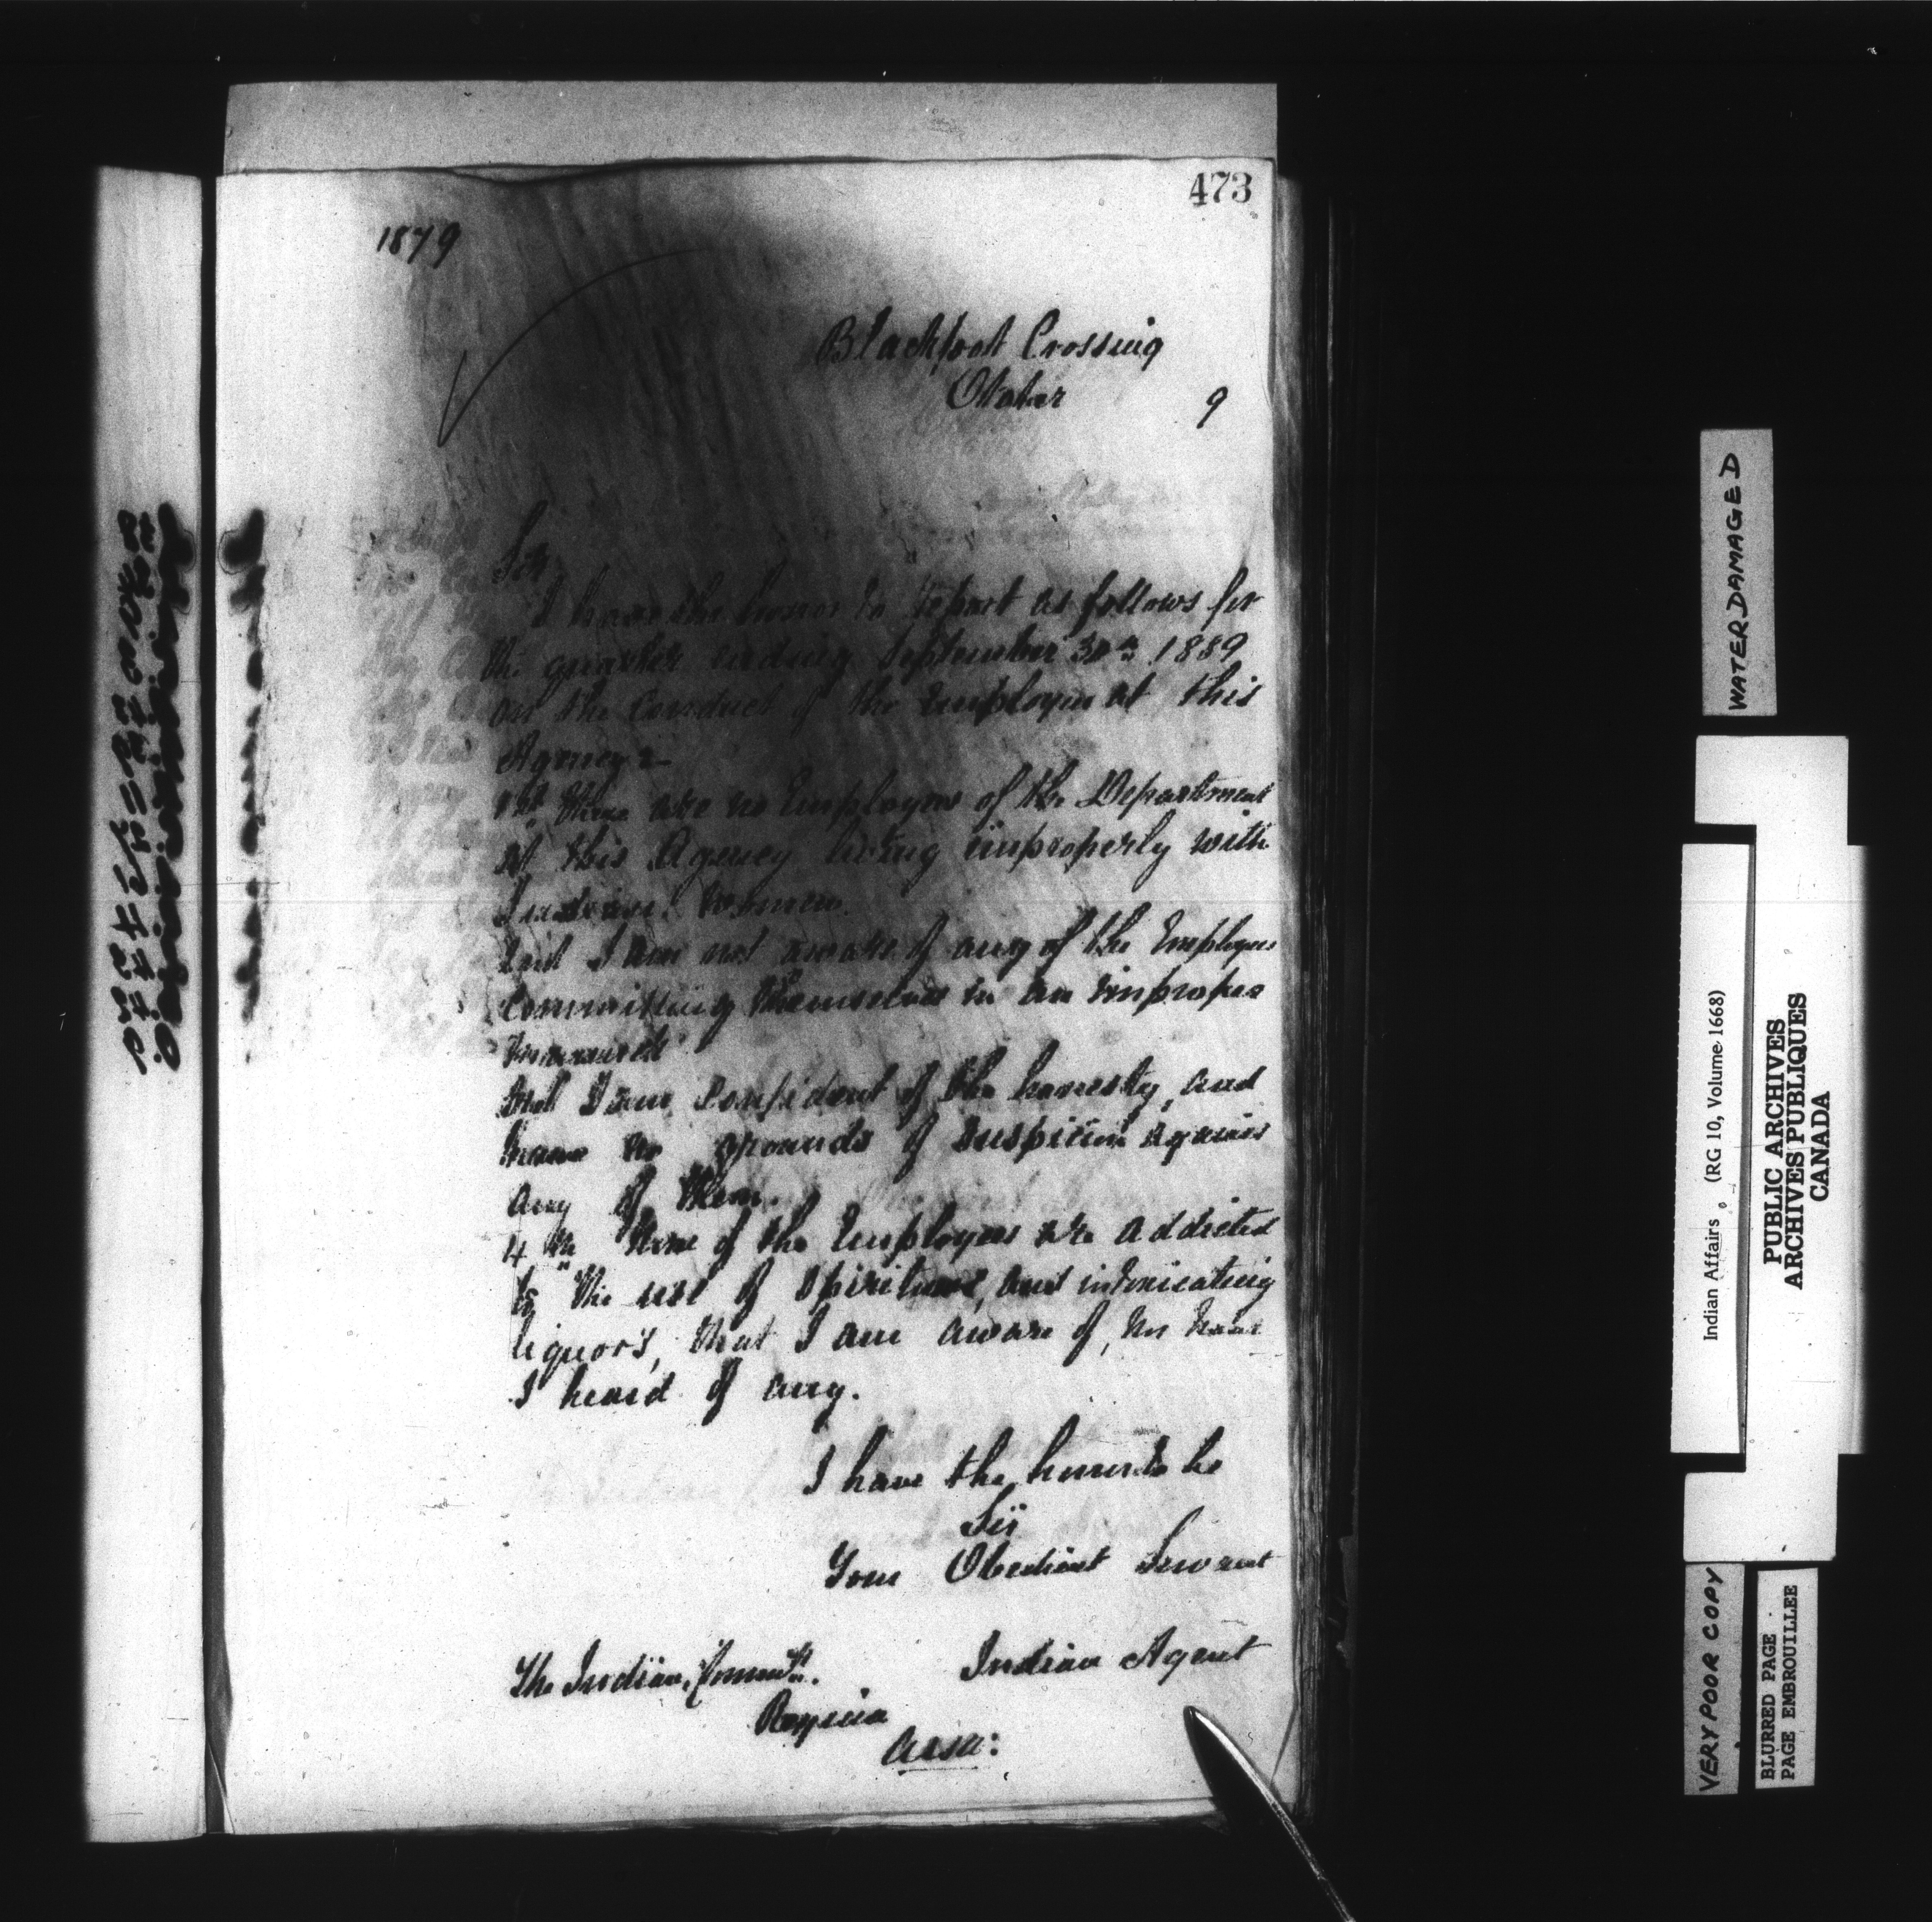 473
1879
Blackfoot Crossing
October 9
Sir
I have the honor to report as follows for
the quarter ending September 30th 1889
on the conduct of the Employees at this
Agency:
1st There are no Employees of the Department
at this Agency living improperly with
Indian Women.
2nd I am not aware of any of the Employees
committing themselves in an improper
manner
3rd I am confident of the honesty, and
have no grounds of suspicion against
any of them.
4th None of the Employees are addicted
to the use of spirituous, and intoxicating
liquors, that I am aware of, nor have
I heard of any.
I have the honor to be
Sir
Your Obedient Servant
Indian Agent
The Indian Commr.
Regina
Assa:
WATER DAMAGED
Indian Affairs. (RG 10, Volume 1668)
PUBLIC ARCHIVES
ARCHIVES PUBLIQUES
CANADA
VERY POOR COPY
BLURRED PAGE
PAGE EMBROUILLEE